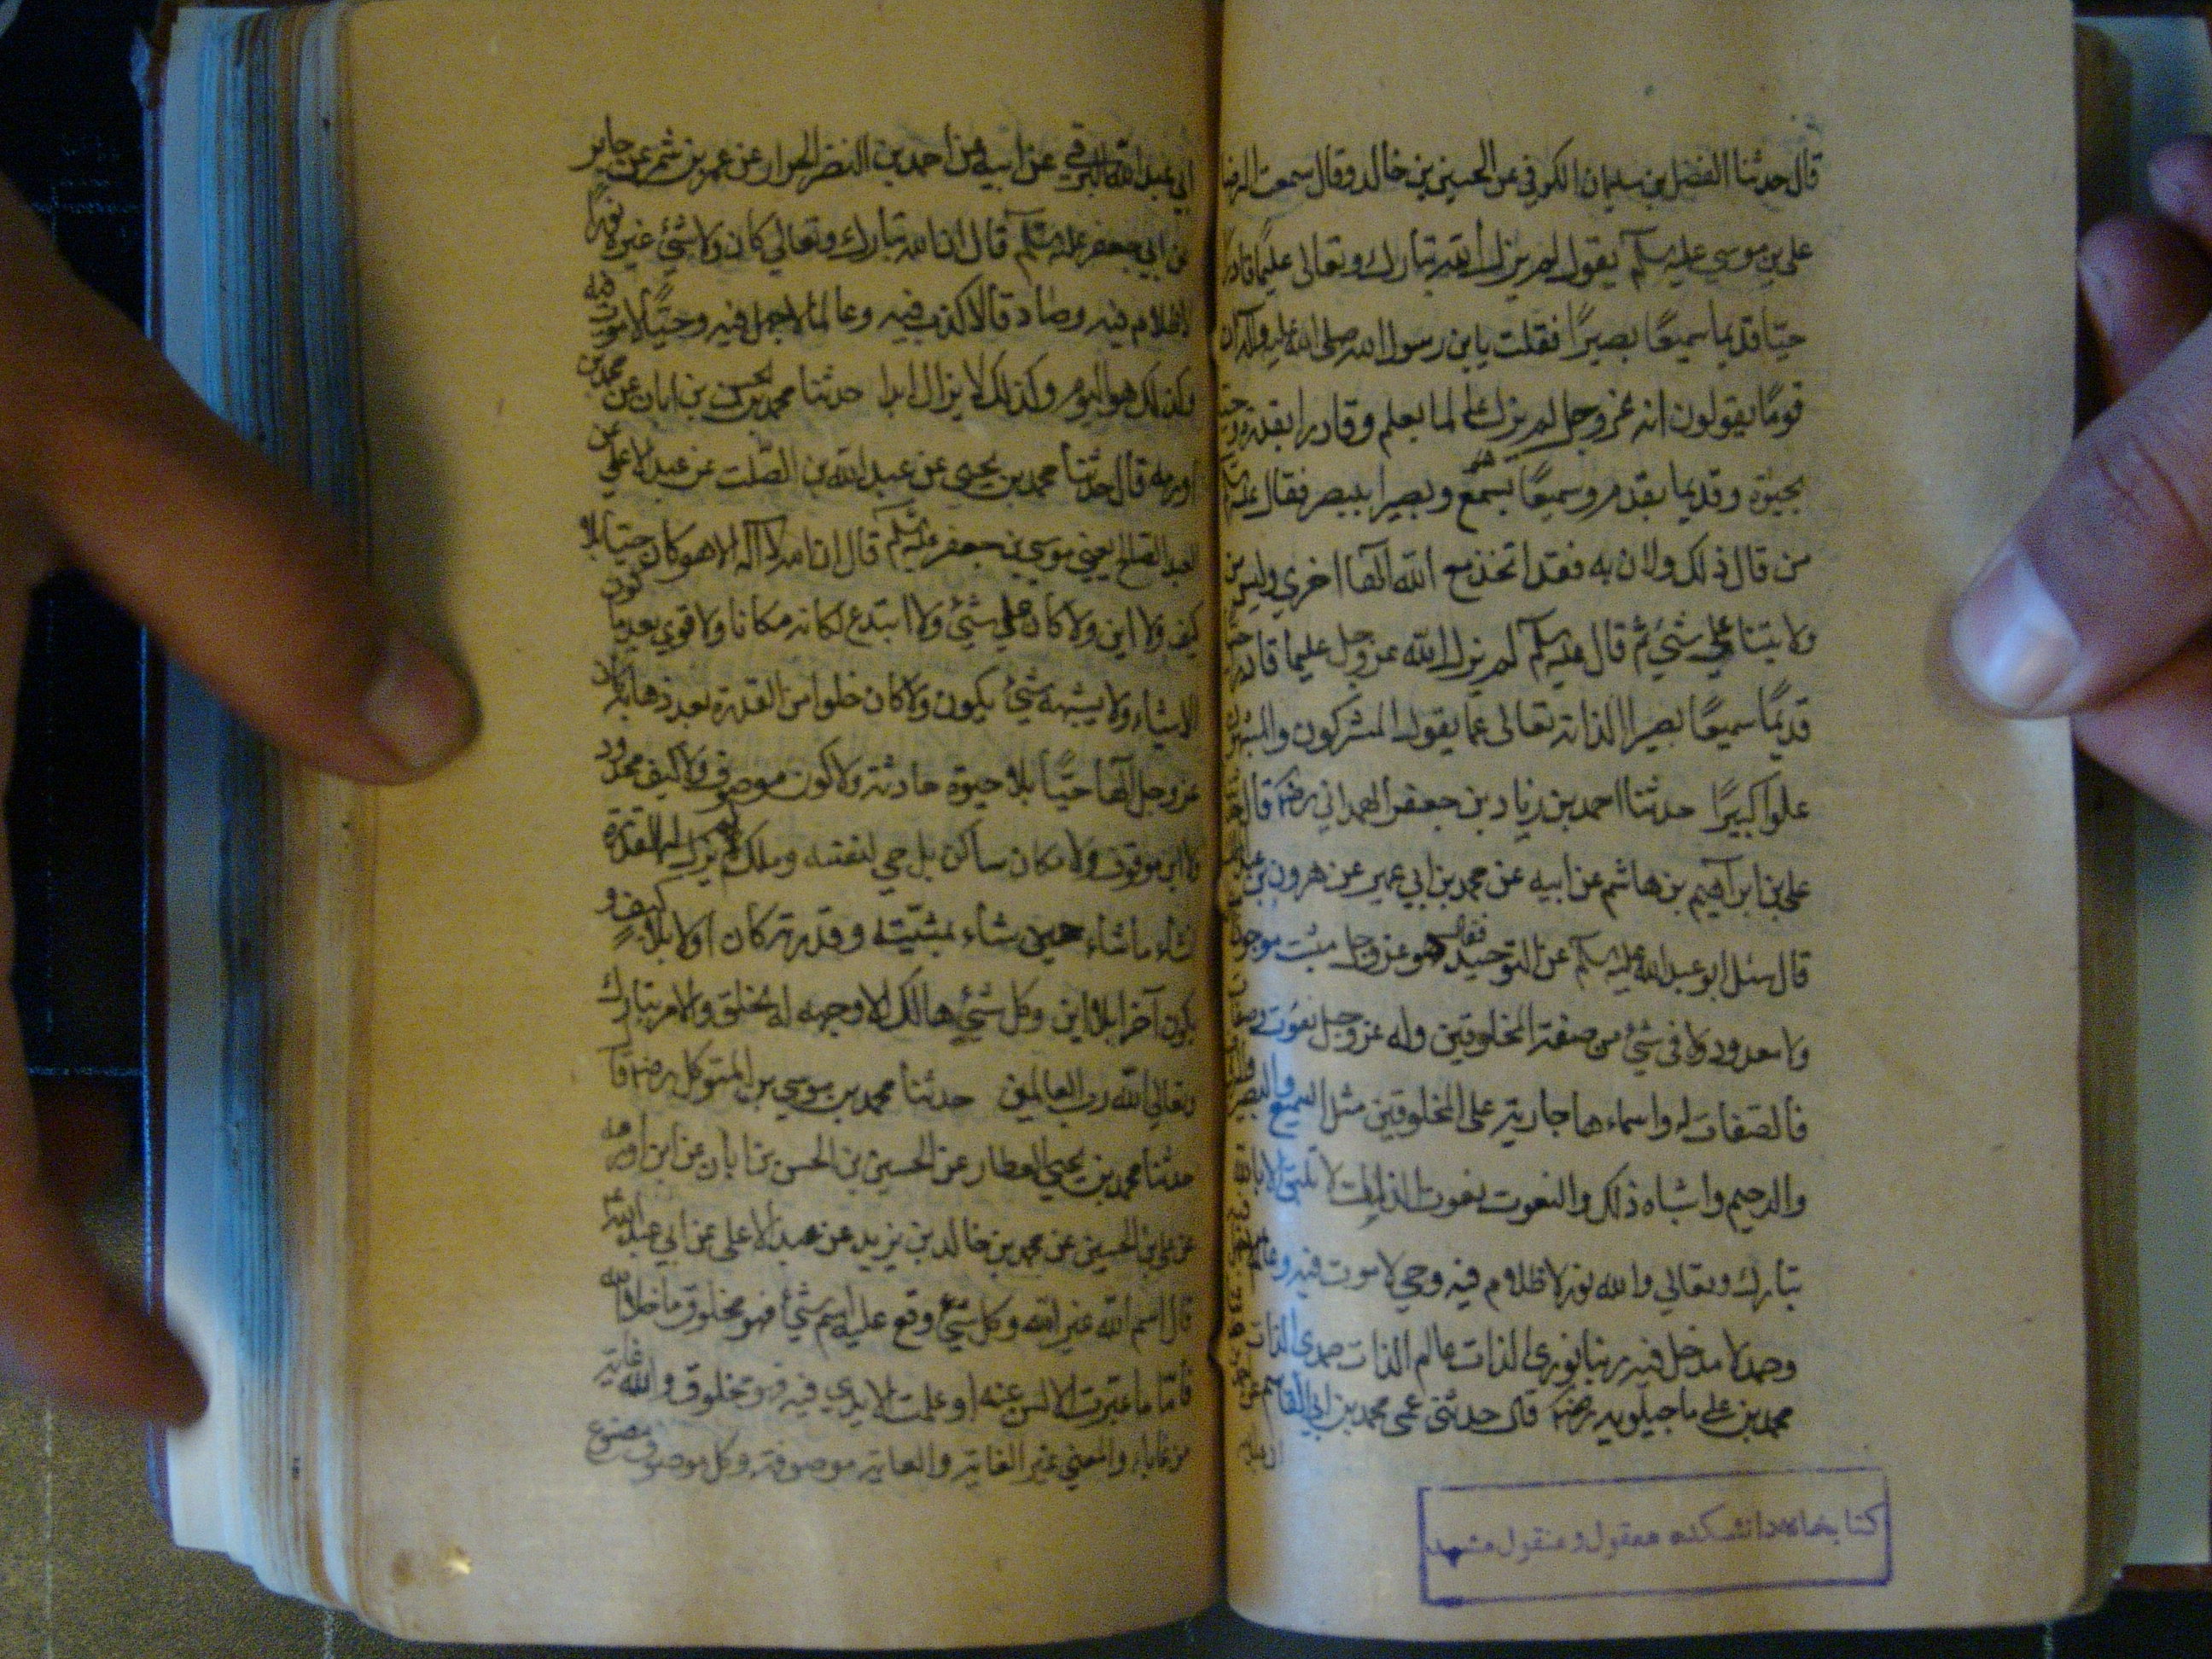 قال حدثنا الفضل بن سليمان الكوفي عن الحسين بن خالد وقال سمعت الرضا
علي بن موسى عليه السلم يقول لم يزل الله تبارك وتعالى عليما قادرا
حيّا قديما سميعًا بصيرًا فقلت يا بن رسول الله صلى الله عليه وآله ان
قومًا يقولون انه عز وجل لم يزل عالما بعلم وقادرا بقدرة وحيا
بحيوة وقديما بقدم وسميعًا بسمع وبصيرا ببصر فقال عليه
من قال ذلك ودان به فقد اتخذ مع الله الها اخرى وليس من
ولايتنا على شيئ ثم قال عليه السلم لم يزل الله عز وجل عليما قادرا
قديمًا سميعًا بصيرا لذاته تعالى عما يقول المشركون والمشبهون
علوا كبيرًا حدثنا احمد بن زياد بن جعفر الهمداني رضه قال
علي بن ابراهيم بن هاشم عن ابيه عن محمد بن ابي عمير عن هرون بن
قال سئل ابو عبد الله عليه السلم عن التوحيد فقال هو عز وجل مثبت موجود
ولا معدود ولا في شيئ من صفة المخلوقين وله عز وجل نعوت
فالصفات له واسماءها جارية على المخلوقين مثل السميع والبصير
والرحيم واشباه ذلك والنعوت نعوت الذات لا تليق الا بالله
تبارك وتعالى والله نور لا ظلام فيه وحي لا موت فيه وعالم
وصمد لا مدخل فيه ربنا نوري الذات عالم الذات صمدي الذات
محمد بن علي ماجيلويه رضه قال حدثني عمي محمد بن ابي القاسم
كتابخانه دانشكده معقول و منقول مشهد
ابي عبد الله البرقي عن ابيه عن احمد بن النضر الخزاز عن عمرو بن شمر عن جابر
عن ابي جعفر عليه السلم قال ان الله تبارك وتعالى كان ولا شيئ غيره نورًا
لا ظلام فيه وصادقا لا كذب فيه وعالما لا جهل فيه وحيًّا لا موت فيه
وكذلك هو اليوم وكذلك لا يزال ابدا حدثنا محمد بن الحسن بن ابان عن محمد بن
اورمه قال حدثنا محمد بن يحيى عن عبد الله بن الصّلت عن عبد الاعلى عن
العبد الصالح يعني موسى بن جعفر عليه السلم قال ان الله لا اله الا هو كان حيّا بلا
كيف ولا اين ولا كان على شيئ ولا ابتدع لكانه مكانا ولا قوي بعد ما كون
الاشياء ولا يشبهه شيئ يكون ولا كان خلوا من القدرة بعد ذهابه
عز وجل الها حيّا بلا حيوة حادثة ولا كون موصوف ولا كيف محدود
ولا اين موقوف ولا مكان ساكن بل حي لنفسه وملك لم يزل له القدرة
انشاء ما شاء حين شاء بمشيّته وقدرته كان اولا بلا كيف و
يكون آخرا بلا اين وكل شيئ هالك الا وجهه له الخلق والامر تبارك
وتعالى الله رب العالمين حدثنا محمد بن موسى بن المتوكل رضه قال
حدثنا محمد بن يحيى العطار عن الحسين بن الحسن بن ابان عن ابن اورمه
عن علي بن الحسين عن محمد بن خالد بن يزيد عن عبد الاعلى عن ابي عبد الله
قال اسم الله غير الله وكل شيئ وقع عليه اسم شيئ فهو مخلوق ما خلا الله
فاما ما عبرت الالسن عنه او عملت الايدي فيه فهو مخلوق والله غاية
من غاياه والمعنى غير الغاية والغاية موصوفة وكل موصوف مصنوع